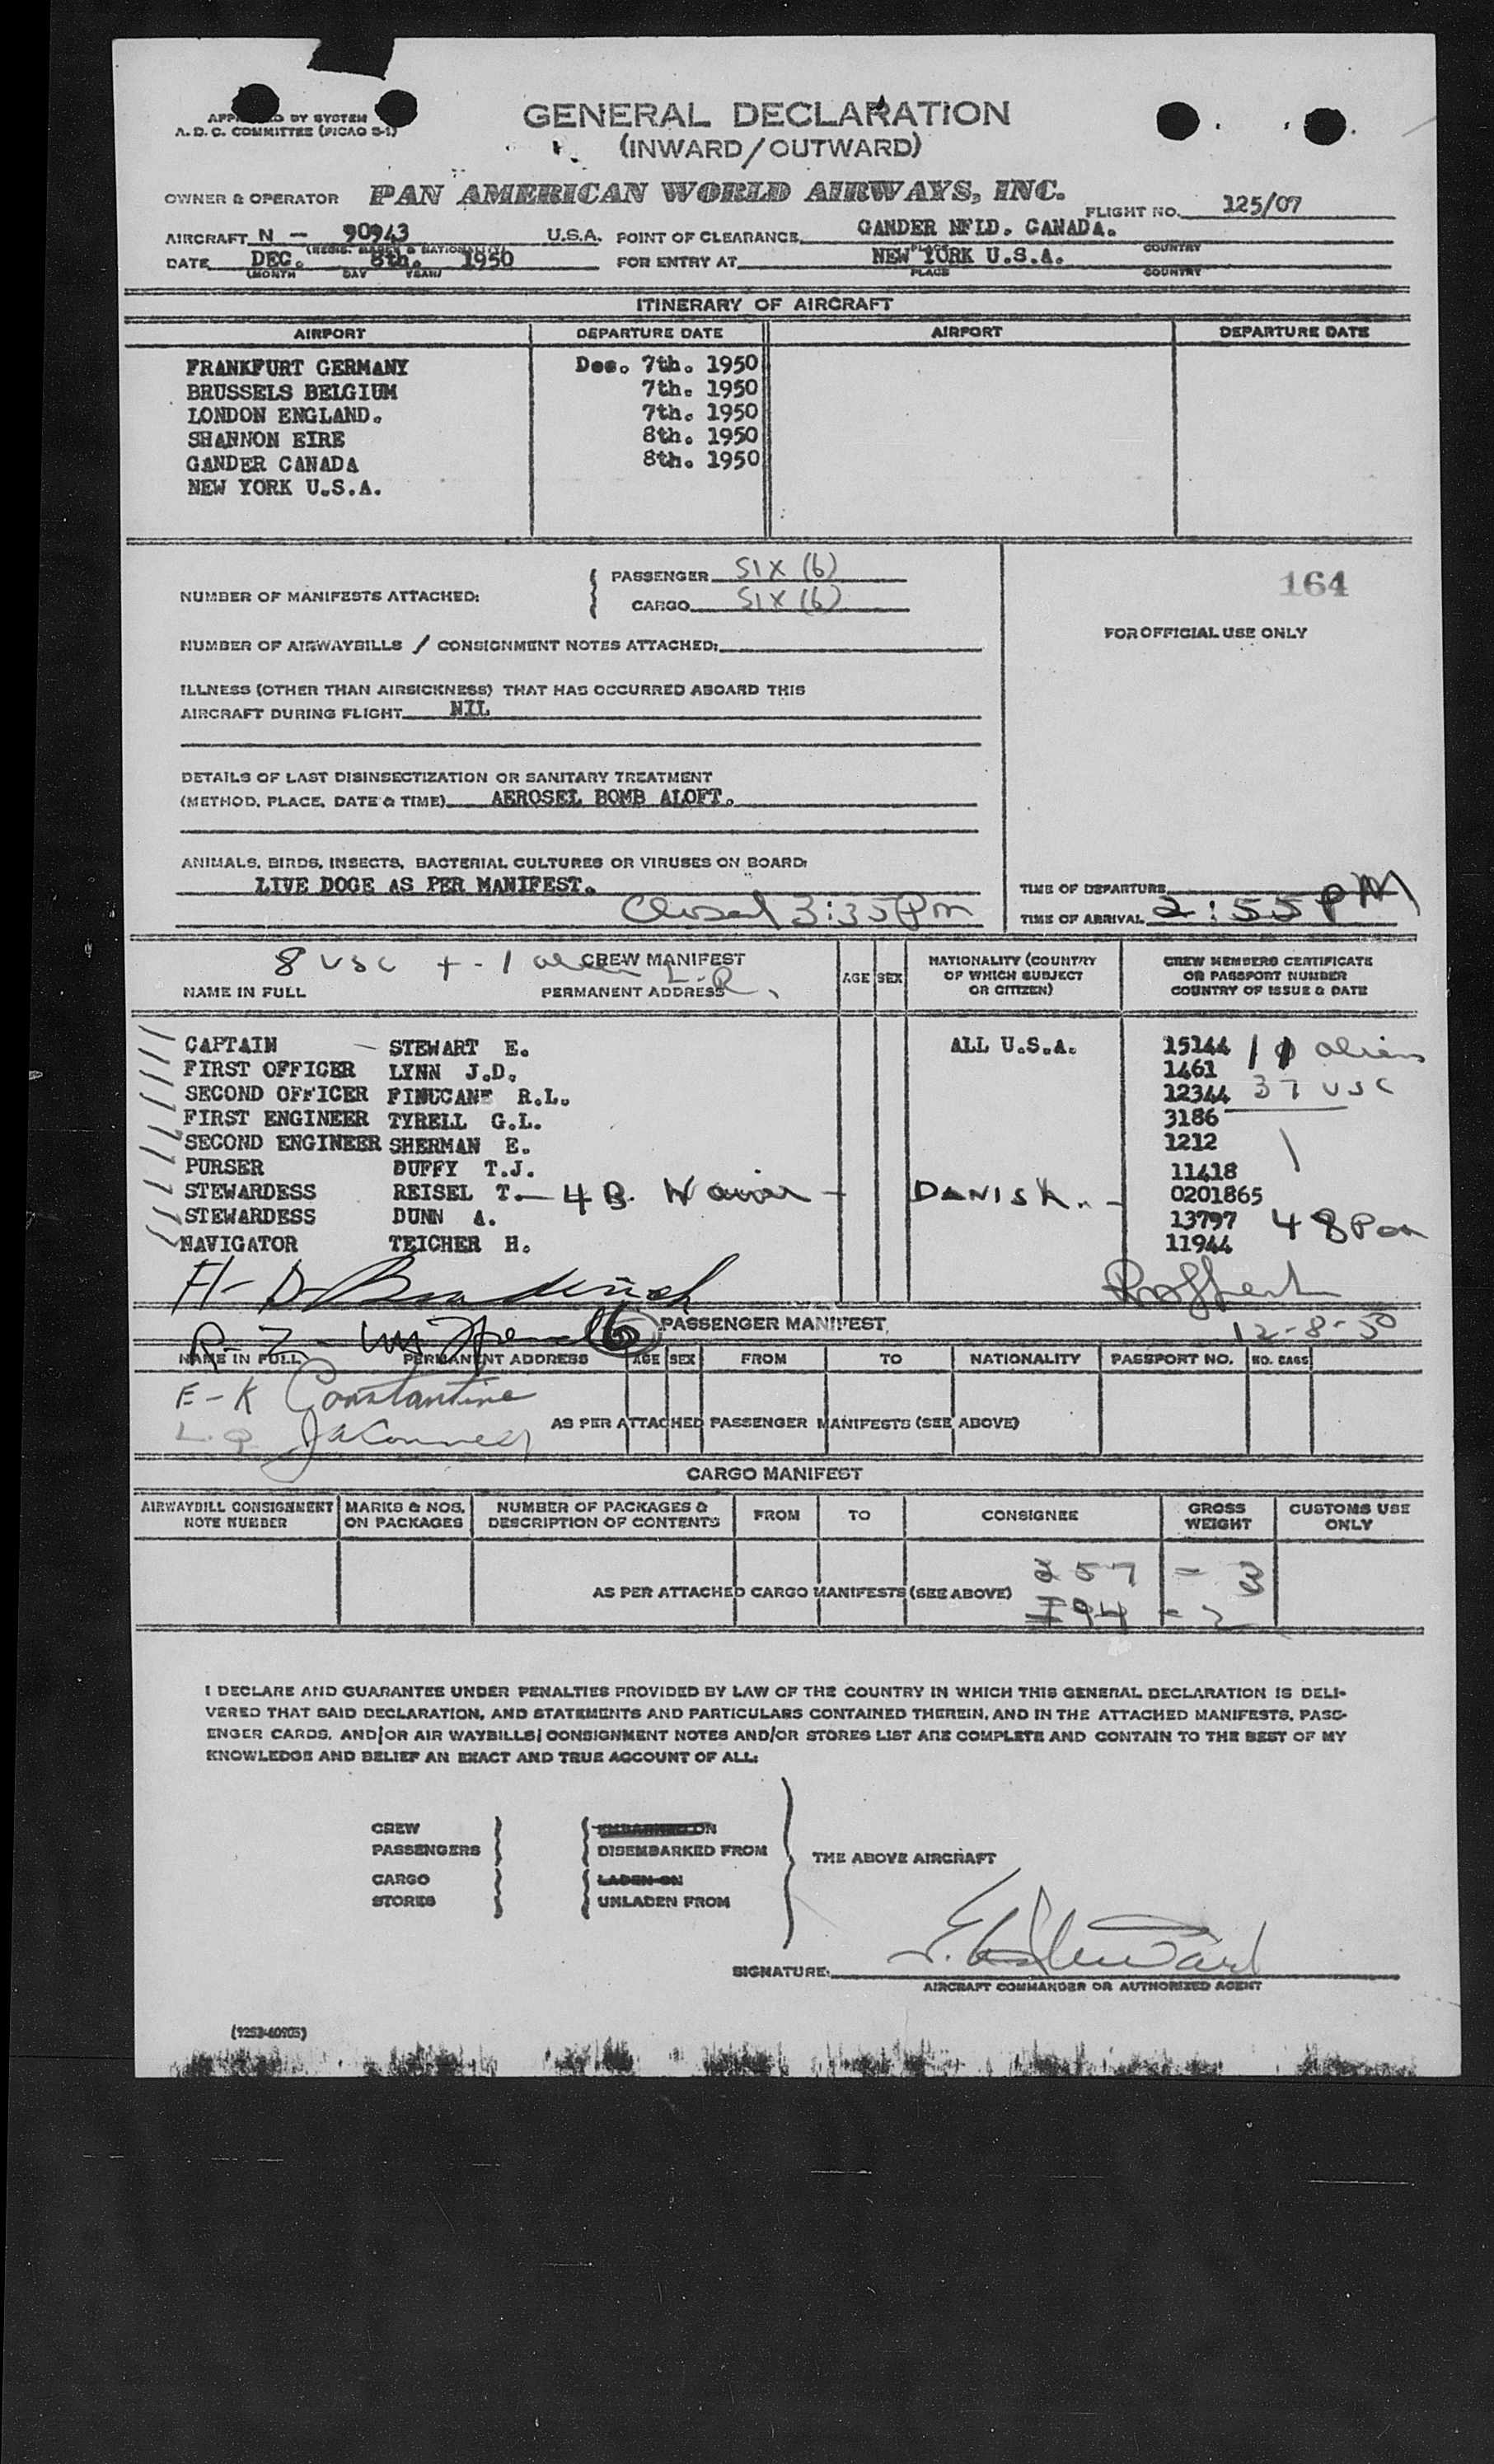 APPROVED BY SYSTEM
A. D. C. COMMITTEE (PICAO S-1)
GENERAL DECLARATION
(INWARD/OUTWARD)
OWNER & OPERATOR PAN AMERICAN WORLD AIRWAYS, INC.
FLIGHT NO. 125/07
AIRCRAFT N - 90943 U.S.A. POINT OF CLEARANCE GANDER NFLD. CANADA.
(REGIS. MARKS & NATIONALITY) PLACE COUNTRY
DATE DEC. 8th. 1950 FOR ENTRY AT NEW YORK U.S.A.
(MONTH DAY YEAR) PLACE COUNTRY
ITINERARY OF AIRCRAFT
AIRPORT DEPARTURE DATE AIRPORT DEPARTURE DATE
FRANKFURT GERMANY Dec. 7th. 1950
BRUSSELS BELGIUM 7th. 1950
LONDON ENGLAND. 7th. 1950
SHANNON EIRE 8th. 1950
GANDER CANADA 8th. 1950
NEW YORK U.S.A.
NUMBER OF MANIFESTS ATTACHED: PASSENGER SIX (6)
CARGO SIX (6)
164
FOR OFFICIAL USE ONLY
NUMBER OF AIRWAYBILLS / CONSIGNMENT NOTES ATTACHED:
ILLNESS (OTHER THAN AIRSICKNESS) THAT HAS OCCURRED ABOARD THIS
AIRCRAFT DURING FLIGHT NIL
DETAILS OF LAST DISINSECTIZATION OR SANITARY TREATMENT
(METHOD, PLACE, DATE & TIME) AEROSEL BOMB ALOFT.
ANIMALS, BIRDS, INSECTS, BACTERIAL CULTURES OR VIRUSES ON BOARD:
LIVE DOGE AS PER MANIFEST.
Closed 3:35 Pm
TIME OF DEPARTURE
TIME OF ARRIVAL 2:55 PM
8 USC + - 1 alien L.R.
CREW MANIFEST
NAME IN FULL PERMANENT ADDRESS AGE SEX
NATIONALITY (COUNTRY
OF WHICH SUBJECT
OR CITIZEN)
CREW MEMBERS CERTIFICATE
OR PASSPORT NUMBER
COUNTRY OF ISSUE & DATE
CAPTAIN - STEWART E. ALL U.S.A. 15144 aliens
FIRST OFFICER LYNN J.D. 1461
SECOND OFFICER FINUCANE R.L. 12344 37 USC
FIRST ENGINEER TYRELL G.L. 3186
SECOND ENGINEER SHERMAN E. 1212
PURSER DUFFY T.J. 11418
STEWARDESS REISEL T. - 4 B. Waiver - DANISH. - 0201865
STEWARDESS DUNN A. 13797 48 Pax
NAVIGATOR TEICHER H. 11944
H - D
R - Z - 6 PASSENGER MANIFEST
12-8-50
NAME IN FULL PERMANENT ADDRESS AGE SEX FROM TO NATIONALITY PASSPORT NO. NO. BAGS
E - K Constantine
L. Q
AS PER ATTACHED PASSENGER MANIFESTS (SEE ABOVE)
CARGO MANIFEST
AIRWAYBILL CONSIGNMENT
NOTE NUMBER
MARKS & NOS.
ON PACKAGES
NUMBER OF PACKAGES &
DESCRIPTION OF CONTENTS
FROM TO CONSIGNEE
GROSS
WEIGHT
CUSTOMS USE
ONLY
257 - 3
AS PER ATTACHED CARGO MANIFESTS (SEE ABOVE)
I 94 - 2
I DECLARE AND GUARANTEE UNDER PENALTIES PROVIDED BY LAW OF THE COUNTRY IN WHICH THIS GENERAL DECLARATION IS DELI-
VERED THAT SAID DECLARATION, AND STATEMENTS AND PARTICULARS CONTAINED THEREIN, AND IN THE ATTACHED MANIFESTS, PASS-
ENGER CARDS, AND/OR AIR WAYBILLS/ CONSIGNMENT NOTES AND/OR STORES LIST ARE COMPLETE AND CONTAIN TO THE BEST OF MY
KNOWLEDGE AND BELIEF AN EXACT AND TRUE ACCOUNT OF ALL:
CREW EMBARKED ON
PASSENGERS DISEMBARKED FROM
THE ABOVE AIRCRAFT
CARGO LADEN ON
STORES UNLADEN FROM
SIGNATURE: E. Stewart
AIRCRAFT COMMANDER OR AUTHORIZED AGENT